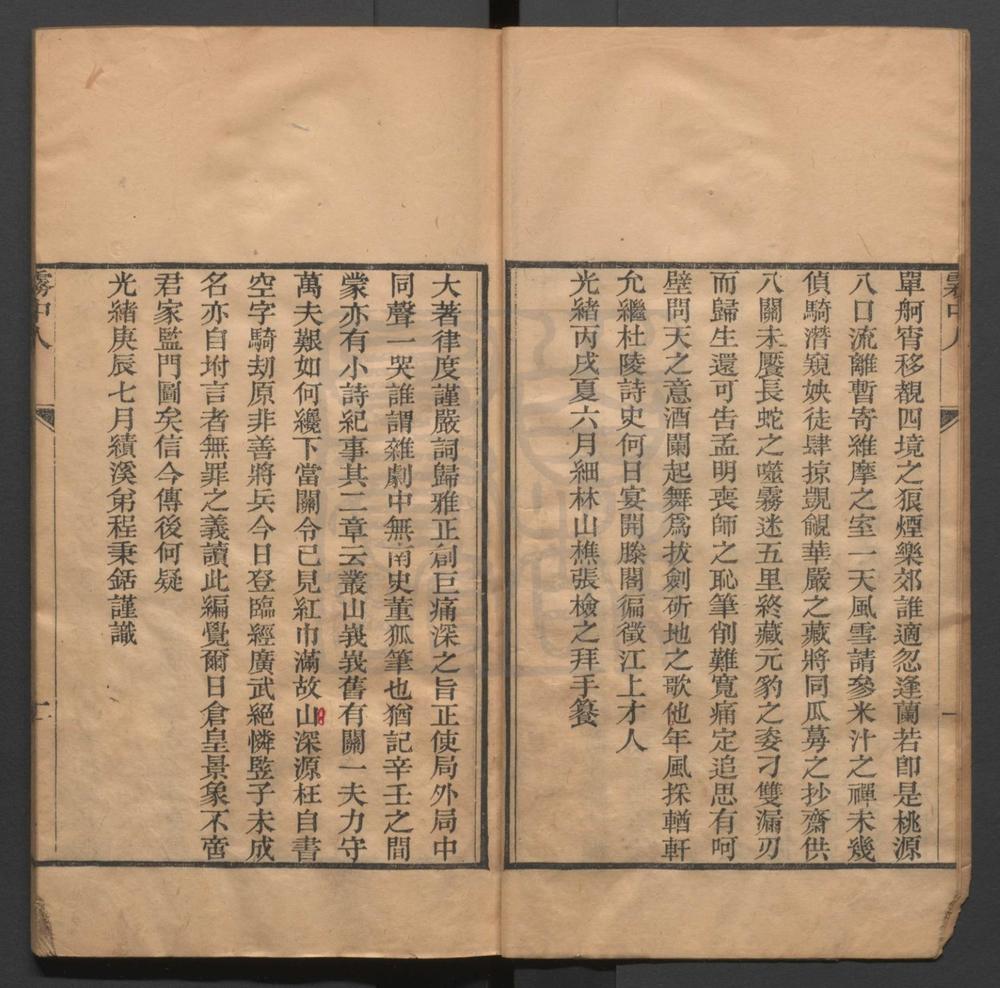 霧中人
單舸宵移覩四境之狼煙樂郊誰適忽逢蘭若卽是桃源
八口流離暫寄維摩之室一天風雪請參米汁之禪未幾
偵騎潛窺姎徒肆掠覬覦華嚴之藏將同瓜蒡之抄齋供
八關未饜長蛇之噬霧迷五里終藏元豹之姿刁雙漏刃
而歸生還可吿孟明喪師之恥筆削難寬痛定追思有呵
壁問天之意酒闌起舞爲拔劍斫地之歌他年風採輶軒
允繼杜陵詩史何日宴開滕閣徧徵江上才人
光緒丙戌夏六月細林山樵張檢之拜手爰
一
大著律度謹嚴詞歸雅正創巨痛深之旨正使局外局中
同聲一哭誰謂雜劇中無南史董狐筆也猶記辛壬之間
蒙亦有小詩紀事其二章云叢山峩峩舊有關一夫力守
萬夫艱如何纔下當關令已見紅巾滿故山深源枉自書
空字騎劫原非善將兵今日登臨經廣武絕憐豎子未成
名亦自坿言者無罪之義讀此編覺爾日倉皇景象不啻
君家監門圖矣信今傳後何疑
光緒庚辰七月績溪弟程秉銛謹識
霧中人